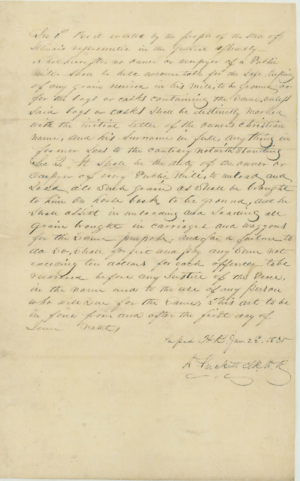 Sec 1st Be it enacted by the people of the State of
Illinois represented in the General Assembly
hereafter no owner or occupyer of a Public
Mill shall be held accountable for the safe keeping
of any grain received in his mill to be ground or
for the bags or casks containing the same unless
said bags or casks shall be distinctly marked
with the initial letter of the owners christian
name, and his surname in full, any thing in
former laws to the contrary notwithstanding
Sec 2. It shall be the duty of the owner or
occupyer of every Public Mill to unload and
load all such grain as shall be brought
to him on horse back to be ground, and he
shall assist in unloading and loading all
grain brought in carriages and waggons
for the same purpose, and for a failure to
do so, shall forfeit and pay any sum not
exceeding ten dollars for each offence, to be
recovered before any Justice of the Peace,
in the name and to the use of any person
who will sue for the same, This act to be
in force from and after the first day of
June next,
H.R. Jan 28 1835